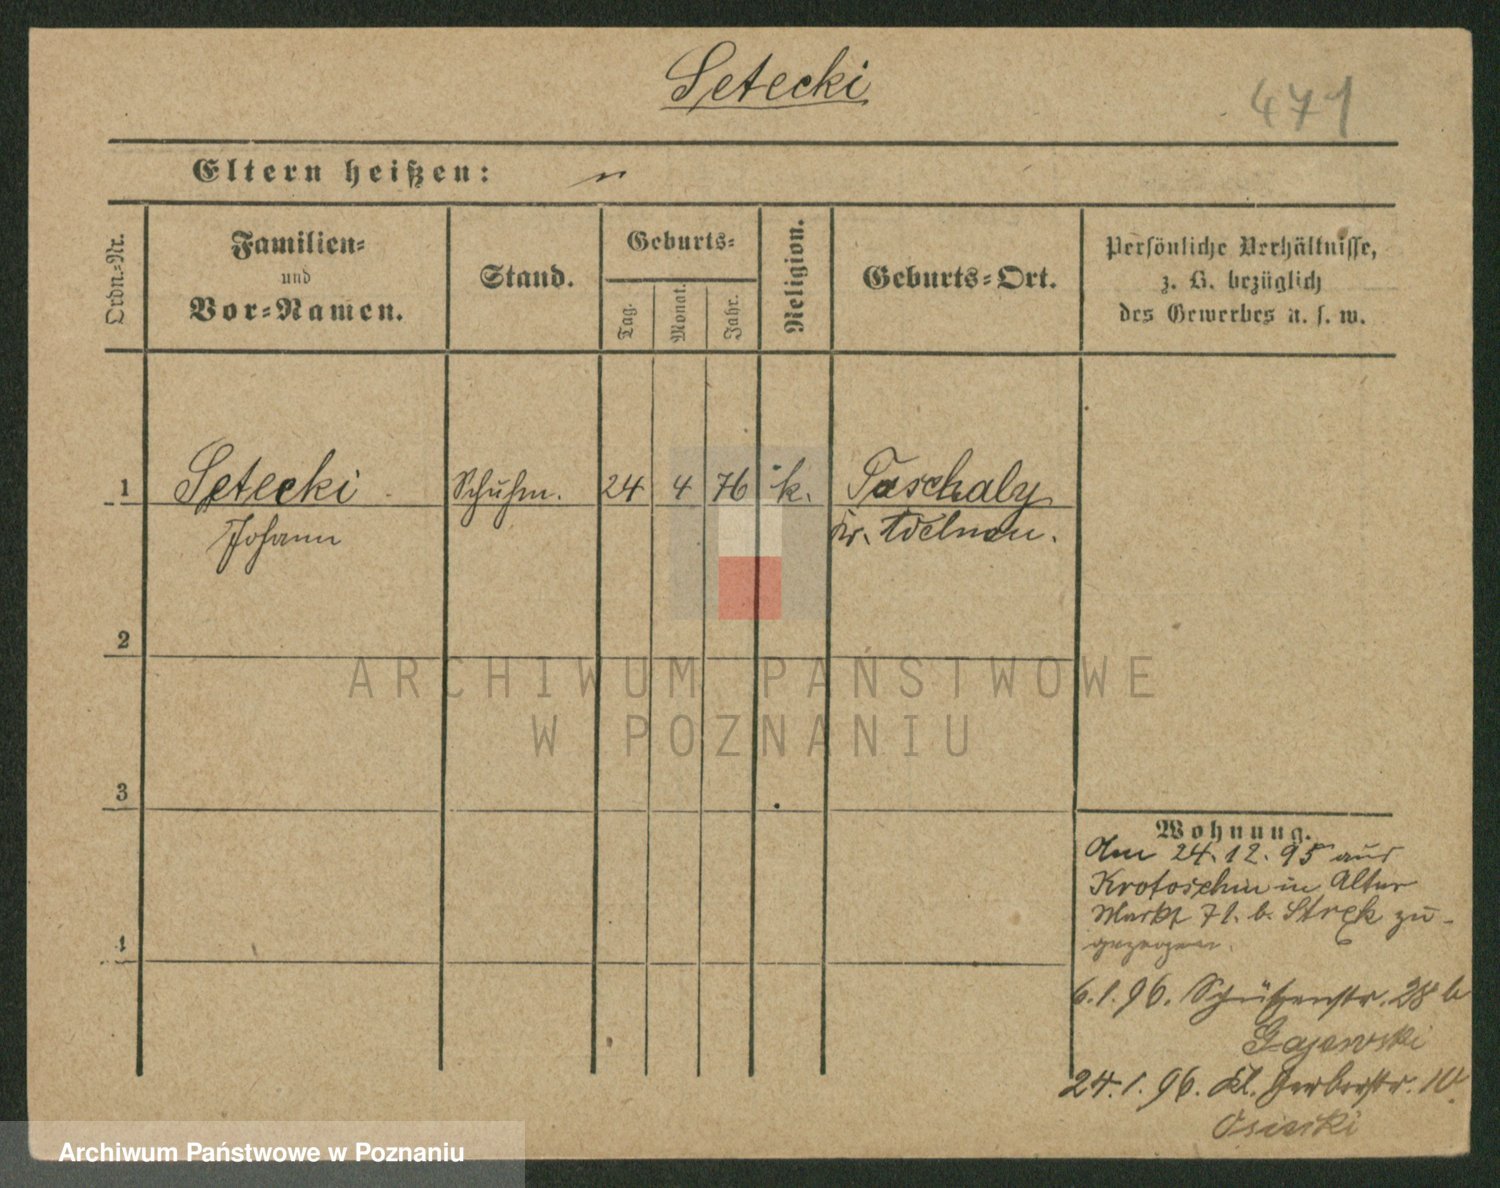 Setecki
471
Eltern heißen:
Ordn.-Nr.
Familien-
und
Vor-Namen.
Stand.
Geburts-
Tag.
Monat.
Jahr.
Religion.
Geburts-Ort.
Persönliche Verhältnisse,
z. B. bezüglich
des Gewerbes u. s. w.
1 Setecki Schuhm. 24 4 76 k. Taschaly
Johann Kr. Adelnau.
2
3
4
Wohnung.
Am 24.12.95 aus
Krotoschin in Alter
Markt 71. b. Strek zu-
gezogen.
6.1.96. Schützenstr. 28 b
Gajewski
24.1.96. Kl. Gerberstr. 10.
Osinski
ARCHIWUM PAŃSTWOWE
W POZNANIU
Archiwum Państwowe w Poznaniu